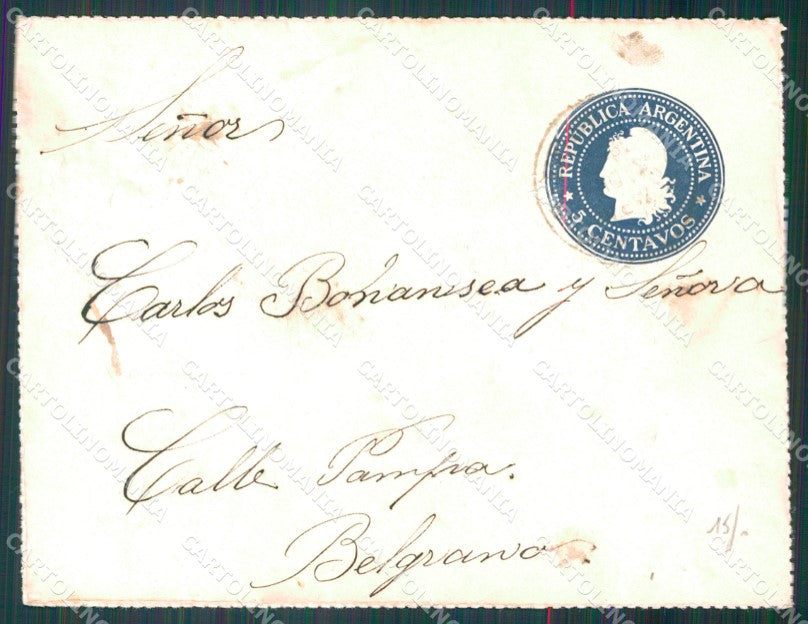 Señor
REPÚBLICA ARGENTINA
5 CENTAVOS
Carlos Bonanisea y Señora
Calle Pampa.
Belgrano.
15/.
CARTOLINOMANIA